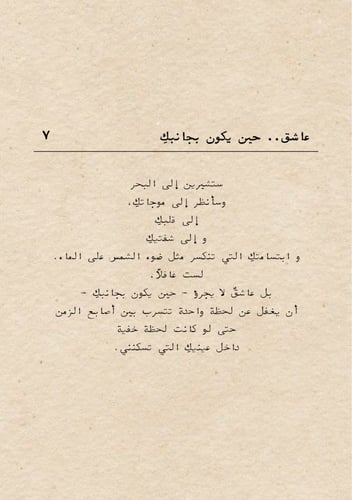 عاشق.. حين يكون بجانبكِ ٧
ستشيرين إلى البحر
وسأنظر إلى موجاتكِ،
إلى قلبكِ
و إلى شفتيكِ
و ابتسامتكِ التي تنكسر مثل ضوء الشمس على الماء.
لست غافلاً،
بل عاشقٌ لا يجرؤ – حين يكون بجانبكِ –
أن يغفل عن لحظة واحدة تتسرب بين أصابع الزمن
حتى لو كانت لحظة خفية
داخل عينيكِ التي تسكنني.